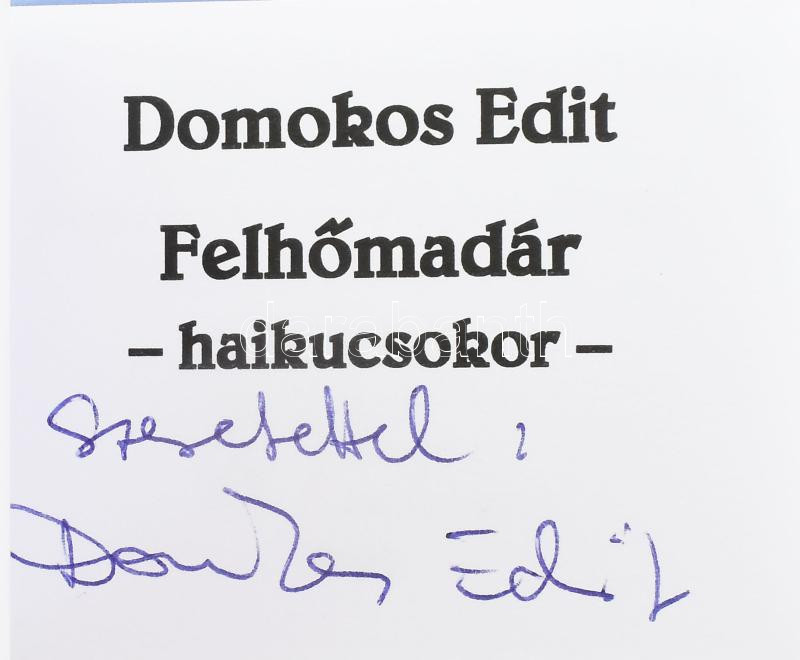 Domokos Edit
Felhőmadár
– haikucsokor –
darabanth
Szeretettel:
Domokos Edit